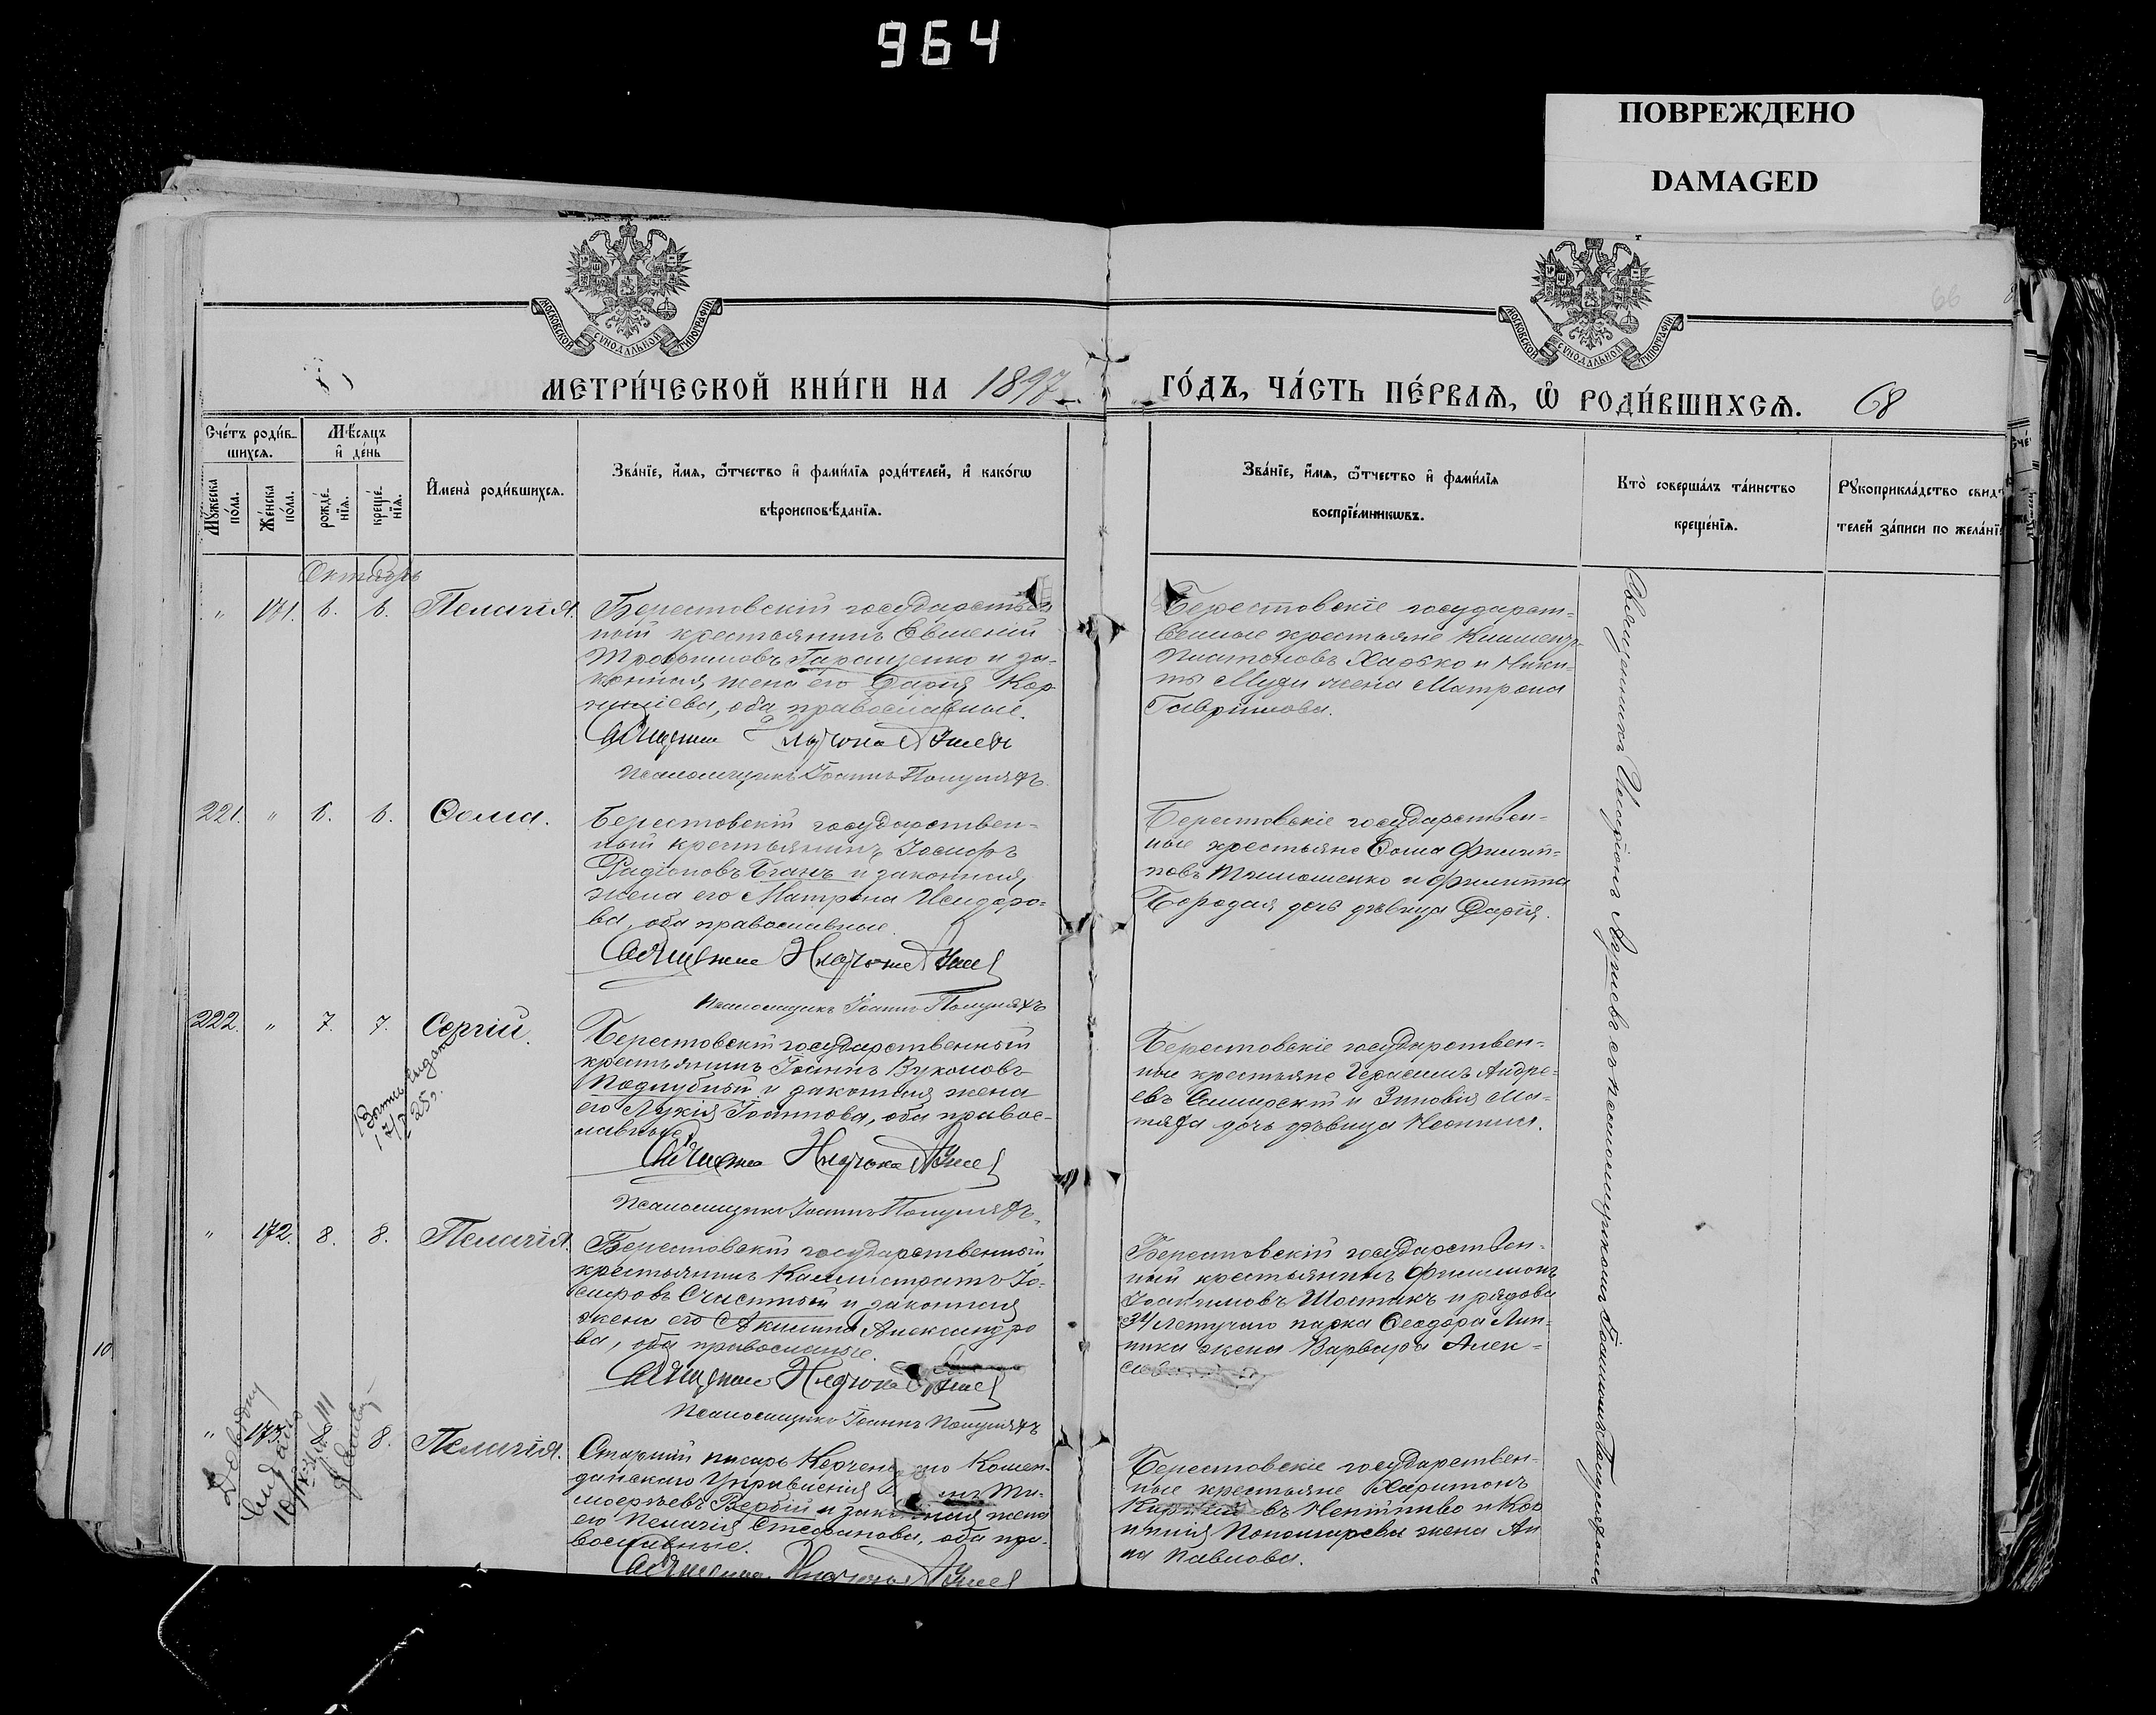 964
ПОВРЕЖДЕНО
DAMAGED
МОСКОВСКОЙ СѴНОДАЛЬНОЙ ТИПОГРАФІИ
МОСКОВСКОЙ СѴНОДАЛЬНОЙ ТИПОГРАФІИ
66
МЕТРИ́ЧЕСКОЙ КНИ́ГИ НА 1897
ГО́ДЪ, ЧА́СТЬ ПЕ́РВАѦ, Ѡ҆ РОДИ́ВШИХСѦ. 68
Сче́тъ роди́в-
шихсѧ.
Мꙋ́жеска по́ла.
Же́нска по́ла.
Мѣ́сѧцъ и҆ де́нь
рожде́-нїѧ.
креще́-нїѧ.
И҆мена̀ роди́вшихсѧ.
Зва́нїе, и҆́мѧ, ѻ҆́тчество и҆ фами́лїѧ роди́телей, и҆ како́гѡ
вѣроисповѣ́данїѧ.
Зва́нїе, и҆́мѧ, ѻ҆́тчество и҆ фами́лїѧ
воспрїе́мникѡвъ.
Кто̀ соверша́лъ та́инство
креще́нїѧ.
Рꙋкоприкла́дство свид
телей за́писи по жела́нї
Октябрь
" 171. 6. 6. Пелагія.
Берестовскій государствен
ный крестьянинъ Евгеній
Трофимовъ Геращенко и за-
конная жена его Дарія Кор
ниліева, оба православные.
Священникъ
Псаломщикъ Іоаннъ Полуляхъ.
Берестовскіе государст-
венные крестьяне Климентъ
Платоновъ Харько и Ники-
ты Мухи жена Матрона
Гаврилова.
221. " 6. 6. Ѳома.
Берестовскій государствен-
ный крестьянинъ Іосифъ
Радіоновъ Бганъ и законная
жена его Матрона Исидоро-
ва, оба православные.
Священникъ
Псаломщикъ Іоаннъ Полуляхъ
Берестовскіе государствен-
ные крестьяне Ѳома Филип-
повъ Тимошенко и Филиппа
Бородая дочь дѣвица Дарія.
222. " 7. 7. Сергій.
Берестовскій государственный
крестьянинъ Іоаннъ Вуколовъ
Поддубный и законная жена
его Лукія Іоаннова, оба правос-
лавные.
Священникъ
Псаломщикъ Іоаннъ Полуляхъ.
Берестовскіе государствен-
ные крестьяне Герасимъ Андре-
евъ Самарскій и Зиновія Ма-
дочь дѣвица Неонила.
" 172. 8. 8. Пелагія.
Берестовскій государственный
крестьянинъ Каллистратъ Іо-
сифовъ Счастный и законная
жена его Акилина Александро
ва, оба православные.
Священникъ
Псаломщикъ Іоаннъ Полуляхъ
Берестовскій государствен-
ный крестьянинъ Филимонъ
Іоакимовъ Шостакъ и рядова
34 летучаго парка Ѳеодора Лип-
ника жена Варвара Алек-
10
" 173. 8. 8. Пелагія.
Старшій писарь Керчен го Комен-
дантскаго Управленія Ти-
моѳеевъ Вербій и законная жена
его Пелагія Стефанова, оба пра-
вославные.
Священникъ
Берестовскіе государствен-
ные крестьяне Харитонъ
въ и Кор
нилія Пономарева жена Ан
на Павлова.
Священникъ съ псаломщикомъ Іоанномъ Полуляхомъ